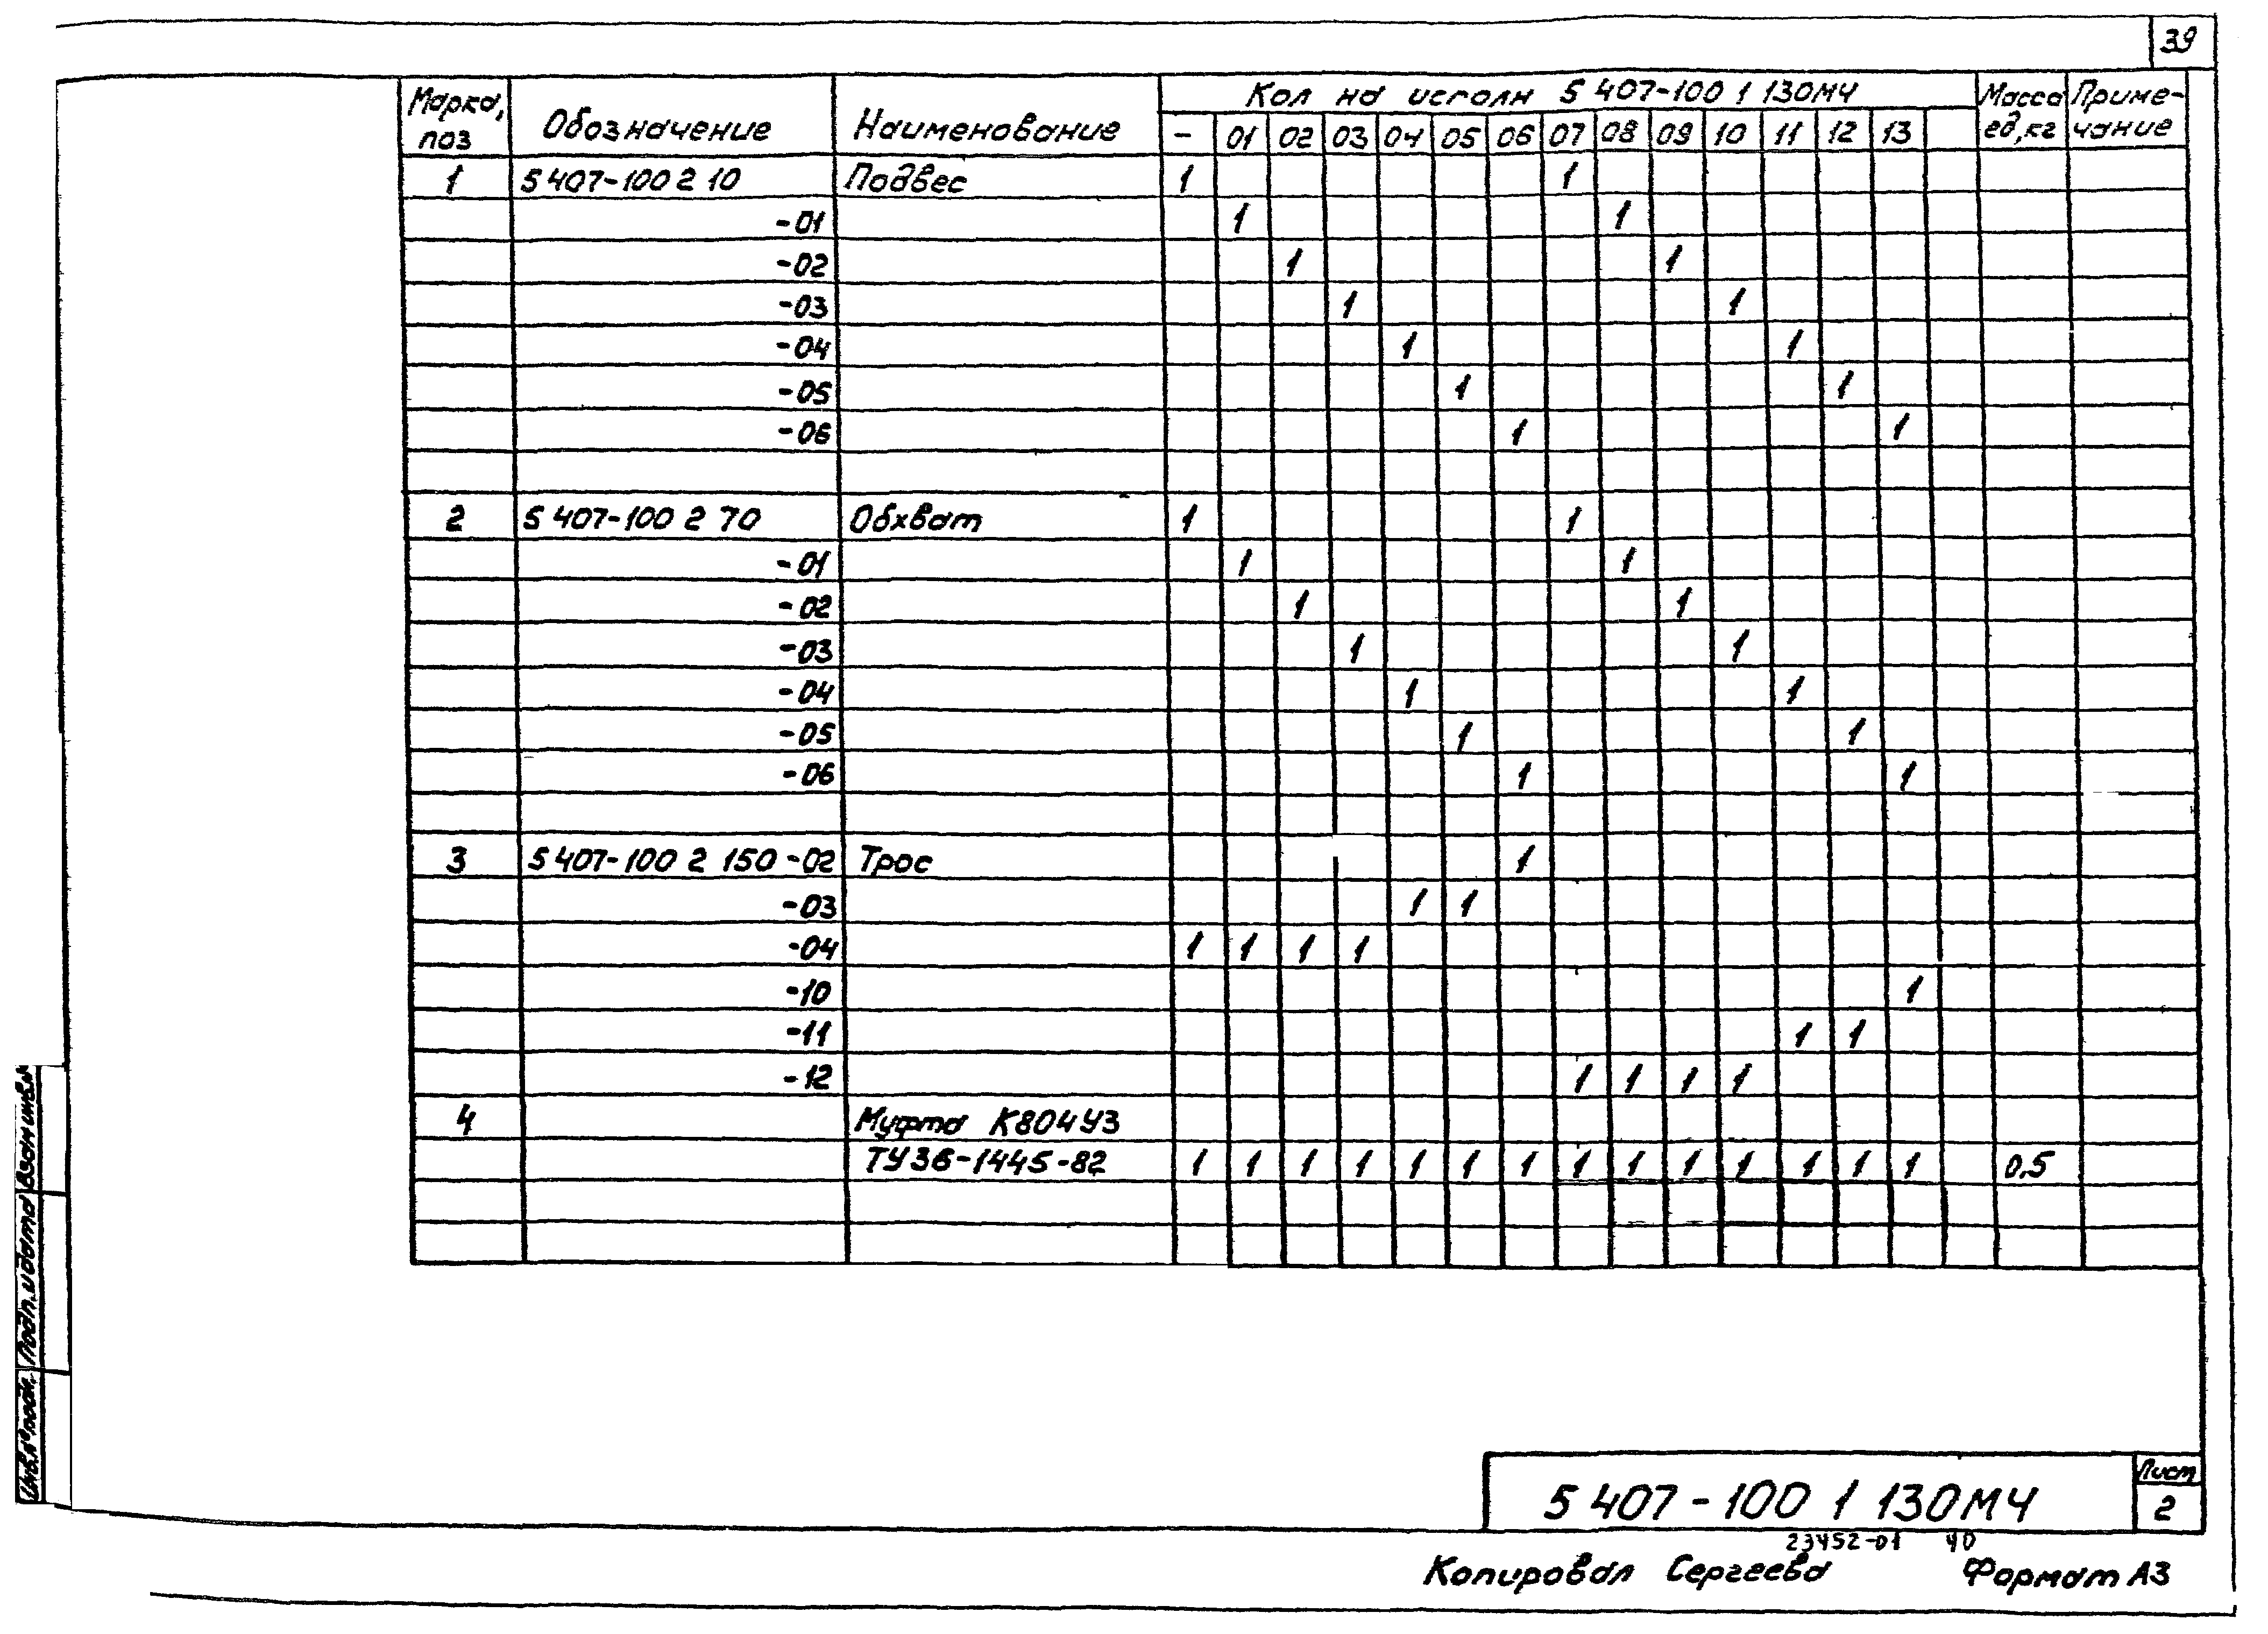 39
Марка, поз Обозначение Наименование Кол на исполн 5 407-100 1 130МЧ Масса ед,кг Примечание
- 01 02 03 04 05 06 07 08 09 10 11 12 13
1 5 407-100 2 10 Подвес 1 1
-01 1 1
-02 1 1
-03 1 1
-04 1 1
-05 1 1
-06 1 1
2 5 407-100 2 70 Обхват 1 1
-01 1 1
-02 1 1
-03 1 1
-04 1 1
-05 1 1
-06 1 1
3 5 407-100 2 150 -02 Трос 1
-03 1 1
-04 1 1 1 1
-10 1
-11 1 1
-12 1 1 1 1
4 Муфта К804У3
ТУ36-1445-82 1 1 1 1 1 1 1 1 1 1 1 1 1 1 0,5
Инв.№ подл. Подп. и дата Взам инв.№
5 407-100 1 130МЧ
Лист
2
23452-01 40
Копировал Сергеева Формат А3